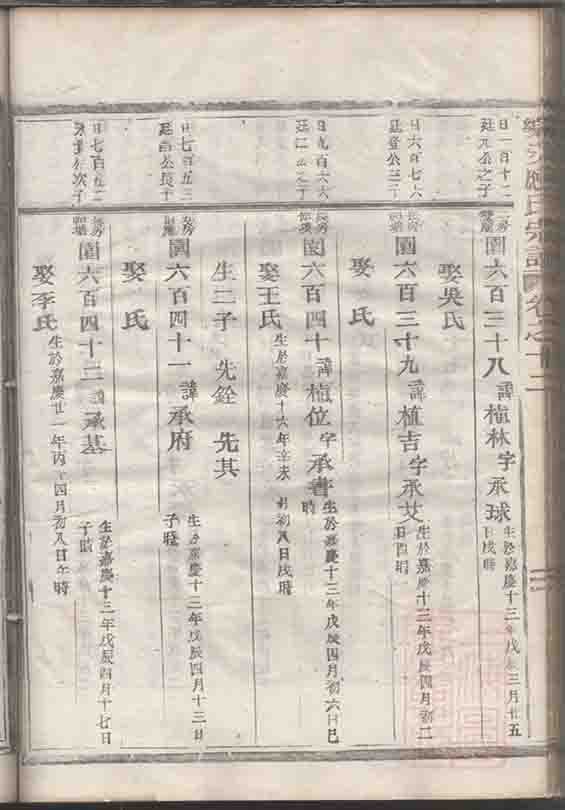 應氏宗譜 卷之十二
日一百十二
廷元公之子
園六百三十八 諱植林 字承球 生於嘉慶十三年戊辰三月廿五
日戌時
娶吳氏
日六百七六
廷登公三子
園六百三十九 諱植吉 字承艾 生於嘉慶十三年戊辰四月初二
娶 氏
日九百六六
園六百四十 諱植位 字承書 生於嘉慶十三年戊辰四月初六日巳
時
娶王氏 生於嘉慶十六年辛未 初八日戌時
生二子 先銓 先其
日七百五三
公長子
園六百四十一 諱承府 生於嘉慶十三年戊辰四月十三日
子時
娶 氏
日七百五二
次子
園六百四十二 諱承基 生於嘉慶十三年戊辰四月十七日
子時
娶李氏 生於嘉慶廿一年丙子四月初八日午時